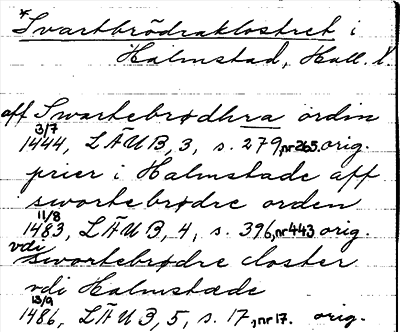 *Svartbrödraklostret i
Halmstad, Hall. l.
aff Swartebrødhra ordin
3/7
1444, LÄUB, 3, s. 279, nr 265. orig.
prier i Halmstade aff
swortebrødre orden
11/8
1483, LÄUB, 4, s. 396, nr 443 orig.
vdi swortebrødre closter
vdi Halmstæde
13/9
1486, LÄUB, 5, s. 17, nr 17. orig.